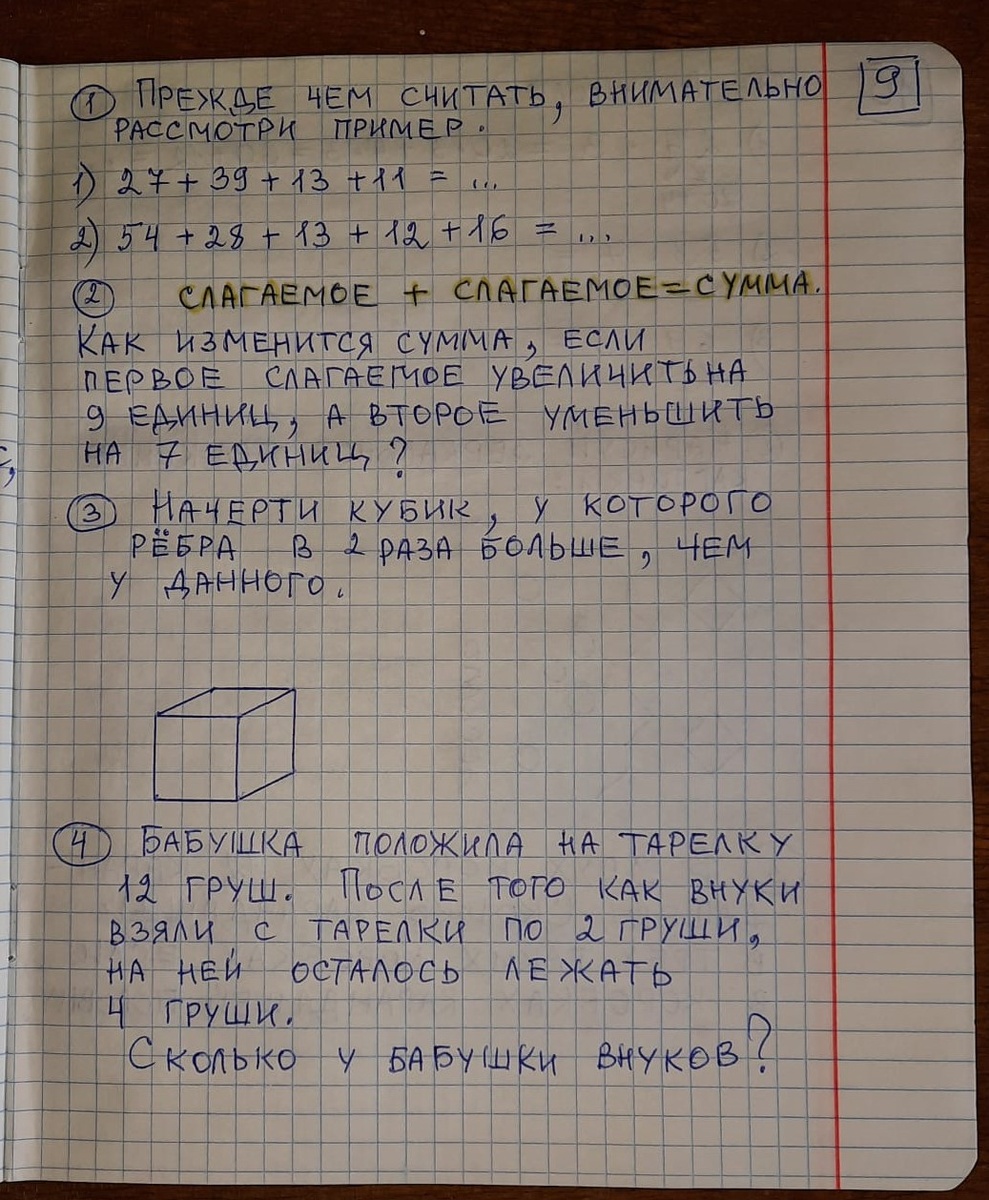 9
① ПРЕЖДЕ ЧЕМ СЧИТАТЬ, ВНИМАТЕЛЬНО
РАССМОТРИ ПРИМЕР.
1) 27 + 39 + 13 + 11 = ...
2) 54 + 28 + 13 + 12 + 16 = ...
② СЛАГАЕМОЕ + СЛАГАЕМОЕ = СУММА.
КАК ИЗМЕНИТСЯ СУММА, ЕСЛИ
ПЕРВОЕ СЛАГАЕМОЕ УВЕЛИЧИТЬ НА
9 ЕДИНИЦ, А ВТОРОЕ УМЕНЬШИТЬ
НА 7 ЕДИНИЦ?
③ НАЧЕРТИ КУБИК, У КОТОРОГО
РЁБРА В 2 РАЗА БОЛЬШЕ, ЧЕМ
У ДАННОГО.
④ БАБУШКА ПОЛОЖИЛА НА ТАРЕЛКУ
12 ГРУШ. ПОСЛЕ ТОГО КАК ВНУКИ
ВЗЯЛИ С ТАРЕЛКИ ПО 2 ГРУШИ,
НА НЕЙ ОСТАЛОСЬ ЛЕЖАТЬ
4 ГРУШИ.
СКОЛЬКО У БАБУШКИ ВНУКОВ?